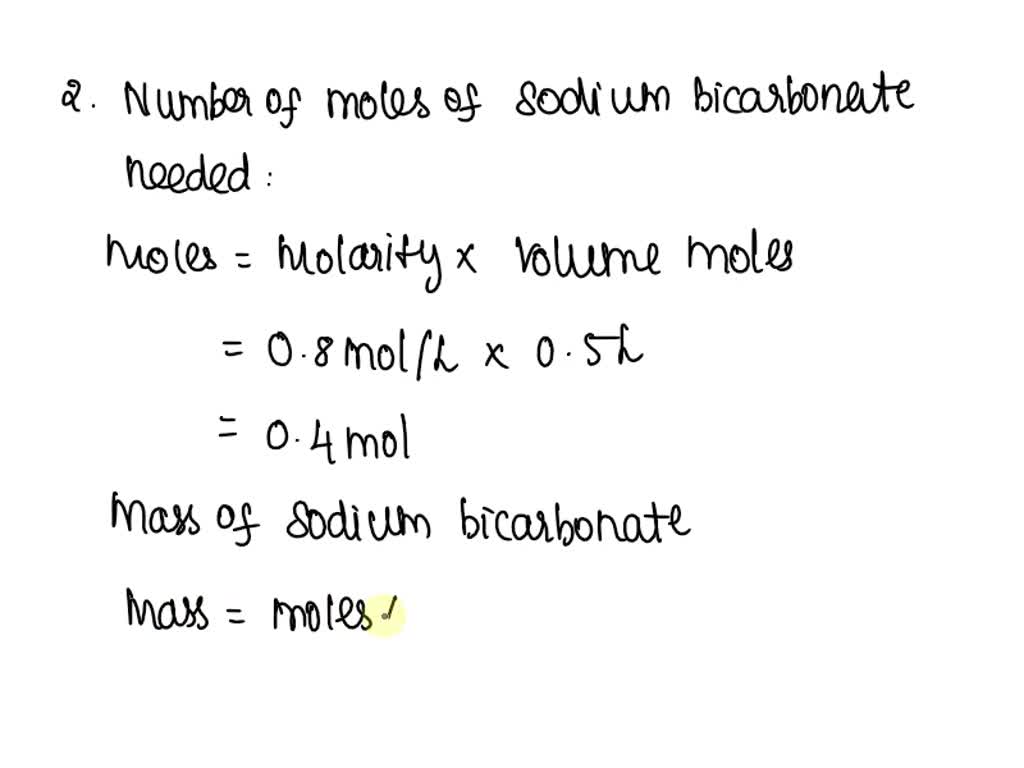 2. Number of moles of sodium bicarbonate
needed:
Moles = Molarity x volume moles
= 0.8 mol/L x 0.5L
= 0.4 mol
Mass of sodium bicarbonate
Mass = moles